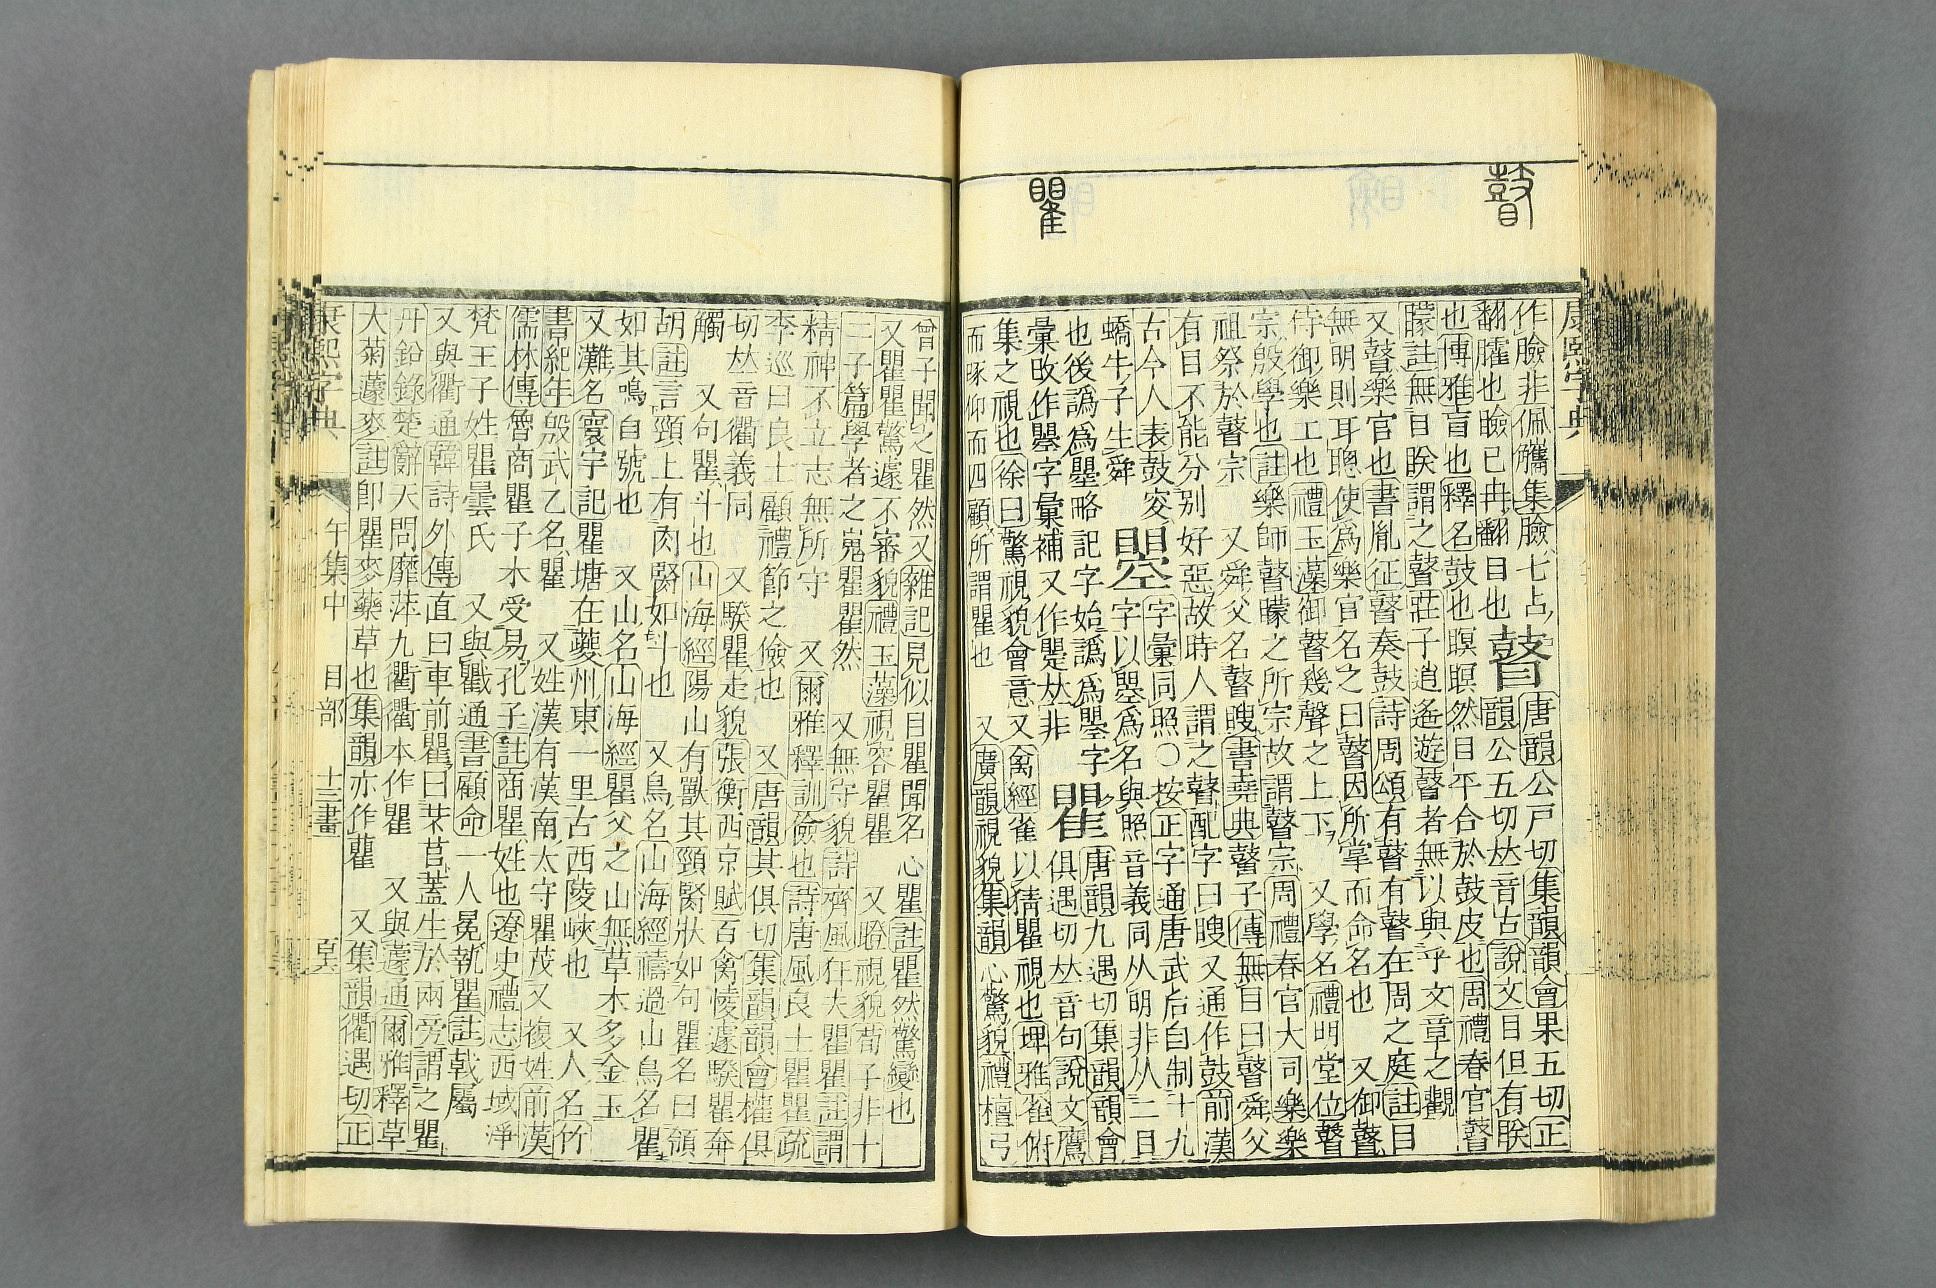 瞽
瞿
康熙字典
作臉非佩觿集臉七占
翻臛也瞼已冉翻目也
瞽
唐韻公戸切集韻韻會果五切正
韻公五切𠀤音古說文目但有眹
也博雅盲也釋名鼓也瞑瞑然目平合於鼓皮也周禮春官瞽
矇註無目眹謂之瞽莊子逍遙遊瞽者無以與乎文章之觀
又瞽樂官也書胤征瞽奏鼓詩周頌有瞽有瞽在周之庭註目
無明則耳聰使爲樂官名之曰瞽因所掌而命名也 又御瞽
侍御樂工也禮玉藻御瞽幾聲之上下 又學名禮明堂位瞽
宗殷學也註樂師瞽矇之所宗故謂瞽宗周禮春官大司樂樂
祖祭於瞽宗 又舜父名瞽瞍書堯典瞽子傳無目曰瞽舜父
有目不能分別好惡故時人謂之瞽配字曰瞍又通作鼓前漢
古今人表鼓㚇
蟜牛子生舜
曌
字彙同照○按正字通唐武后自制十九
字以曌爲名與照音義同从明非从二目
也後譌爲瞾略記字始譌爲瞾字
彙攺作瞾字彙補又作𥋓𠀤非
瞿
唐韻九遇切集韻韻會
俱遇切𠀤音句說文鷹
集之視也徐曰驚視貌會意又禽經雀以猜瞿視也埤雅雀俯
而啄仰而四顧所謂瞿也 又廣韻視貌集韻心驚貌禮檀弓
曾子聞之瞿然又雜記見似目瞿聞名心瞿註瞿然驚變也
又瞿瞿驚遽不審貌禮玉藻視容瞿瞿 又瞪視貌荀子非十
二子篇學者之嵬瞿瞿然 又無守貌詩齊風狂夫瞿瞿註謂
精神不立志無所守 又爾雅釋訓儉也詩唐風良士瞿瞿疏
李巡曰良士顧禮節之儉也 又唐韻其俱切集韻韻會權俱
切𠀤音衢義同 又騤瞿走貌張衡西京賦百禽㥄遽騤瞿奔
觸 又句瞿斗也山海經陽山有獸其頸䝨狀如句瞿名曰領
胡註言頸上有肉䝨如斗也 又鳥名山海經禱過山鳥名瞿
如其鳴自號也 又山名山海經瞿父之山無草木多金玉
又灘名寰宇記瞿塘在夔州東一里古西陵峽也 又人名竹
書紀年殷武乙名瞿 又姓漢有漢南太守瞿茂又複姓前漢
儒林傳魯商瞿子木受易孔子註商瞿姓也遼史禮志西域淨
梵王子姓瞿曇氏 又與戵通書顧命一人冕執瞿註戟屬
又與衢通韓詩外傳直曰車前瞿曰芣苢蓋生於兩旁謂之瞿
丹鉛錄楚辭天問靡蓱九衢衢本作瞿 又與蘧通爾雅釋草
大菊蘧麥註卽瞿麥藥草也集韻亦作蘿 又集韻衢遇切正
康熙字典
午集中 目部 十三畫